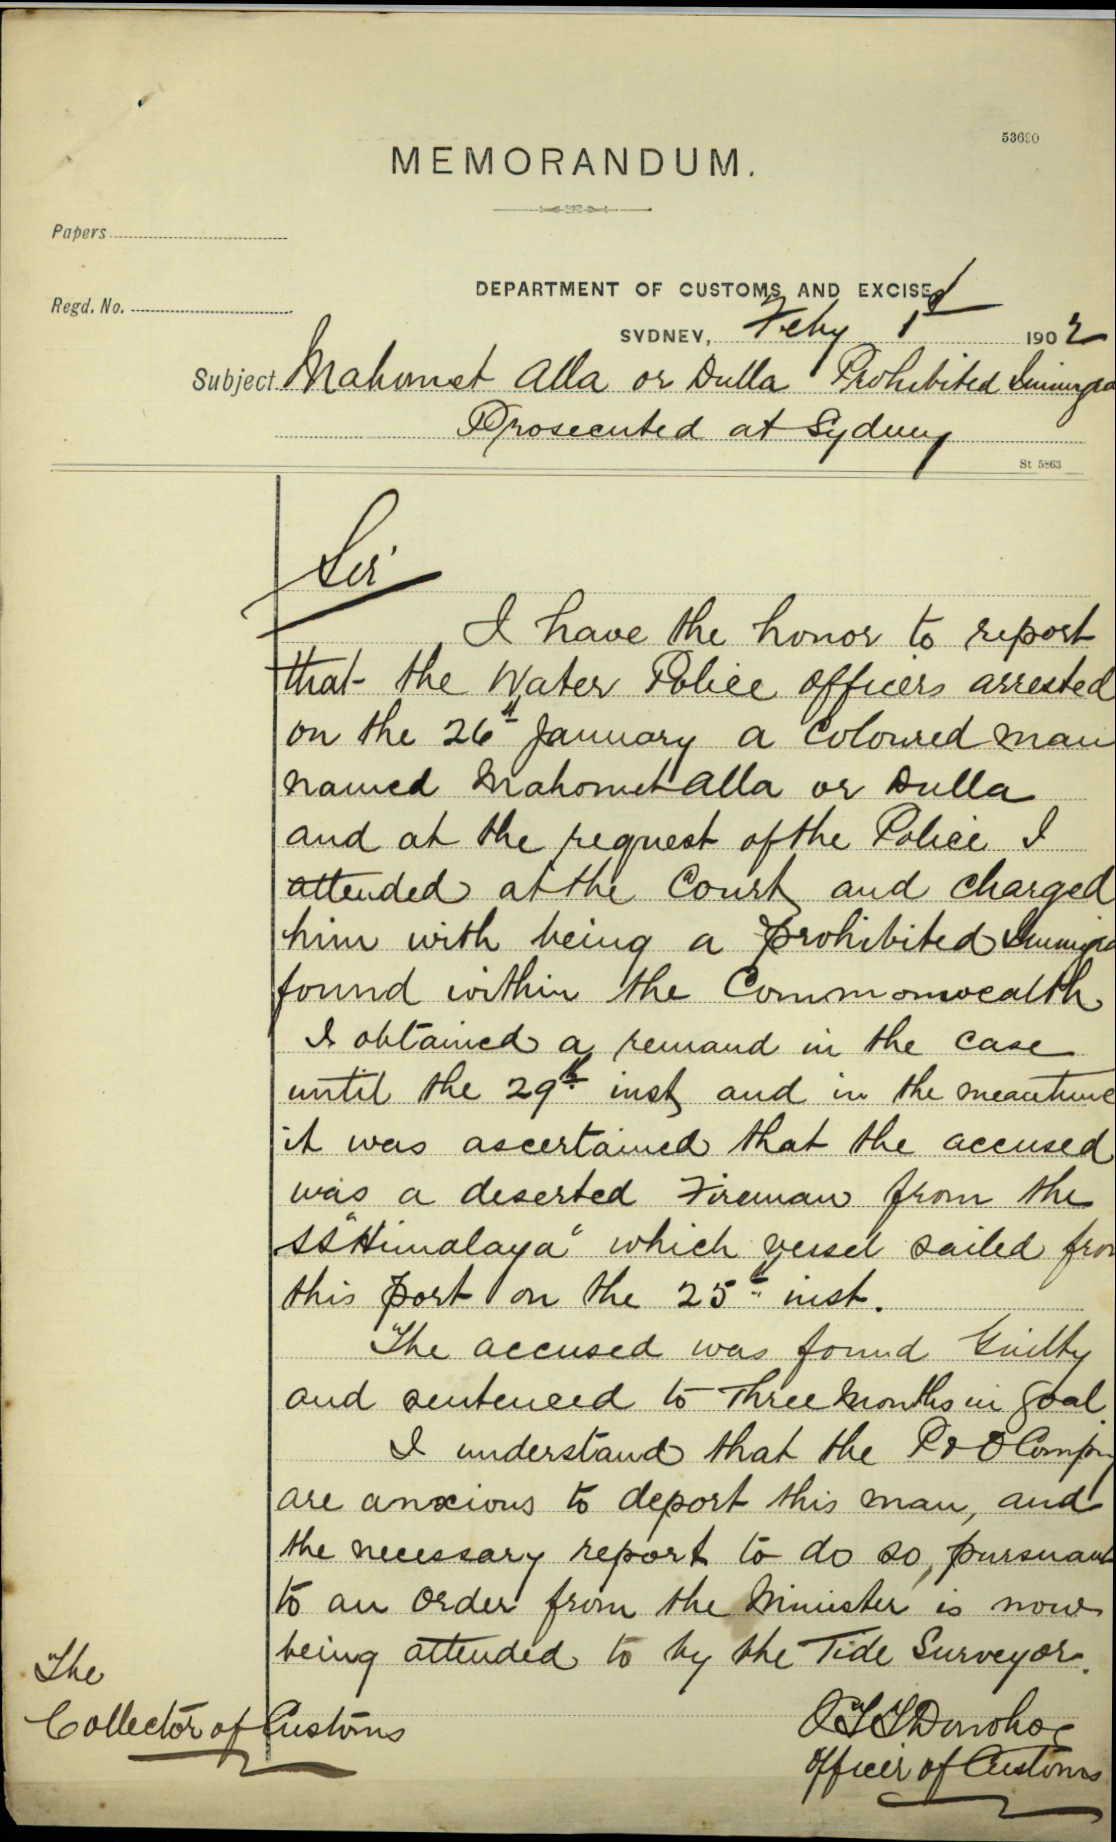 53690
MEMORANDUM.
Papers
Regd. No.
DEPARTMENT OF CUSTOMS AND EXCISE,
SYDNEY, Feby 1st 1902
Subject Mahomet Alla or Dulla Prohibited Immigra
Prosecuted at Sydney
St 5863
Sir
I have the honor to report
that the Water Police officers arrested
on the 26th January a Coloured man
named Mahomet Alla or Dulla
and at the request of the Police I
attended at the Court and charged
him with being a prohibited Immigra
found within the Commonwealth
I obtained a remand in the case
until the 29th inst and in the meantime
it was ascertained that the accused
was a deserted Fireman from the
SS "Himalaya" which vessel sailed from
this port on the 25th inst.
The accused was found Guilty
and sentenced to Three Months in goal
I understand that the P & O Compny
are anxious to deport this man, and
the necessary report to do so, pursuant
to an order from the Minister is now
being attended to by the Tide Surveyor.
The
Collector of Customs
Donohoe
Officer of Customs